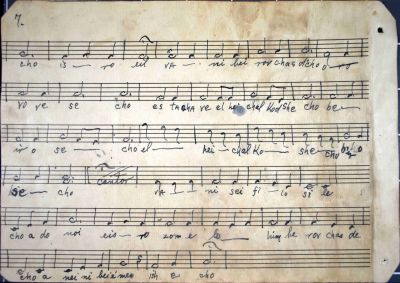 7.
cho is — ro eil VA — ni bei rov chas d cho o
vo ve se cho es TACHA ve el hei chal Kod she cho be —
ir o se — cho el — hei — chal Ko — she — cho
se — cho Cantor VA — ni sei fi — lo si le
cho a do noi eis — ro zom e lo — him be rov chas de
cho a nei ni be e mes ish e cho